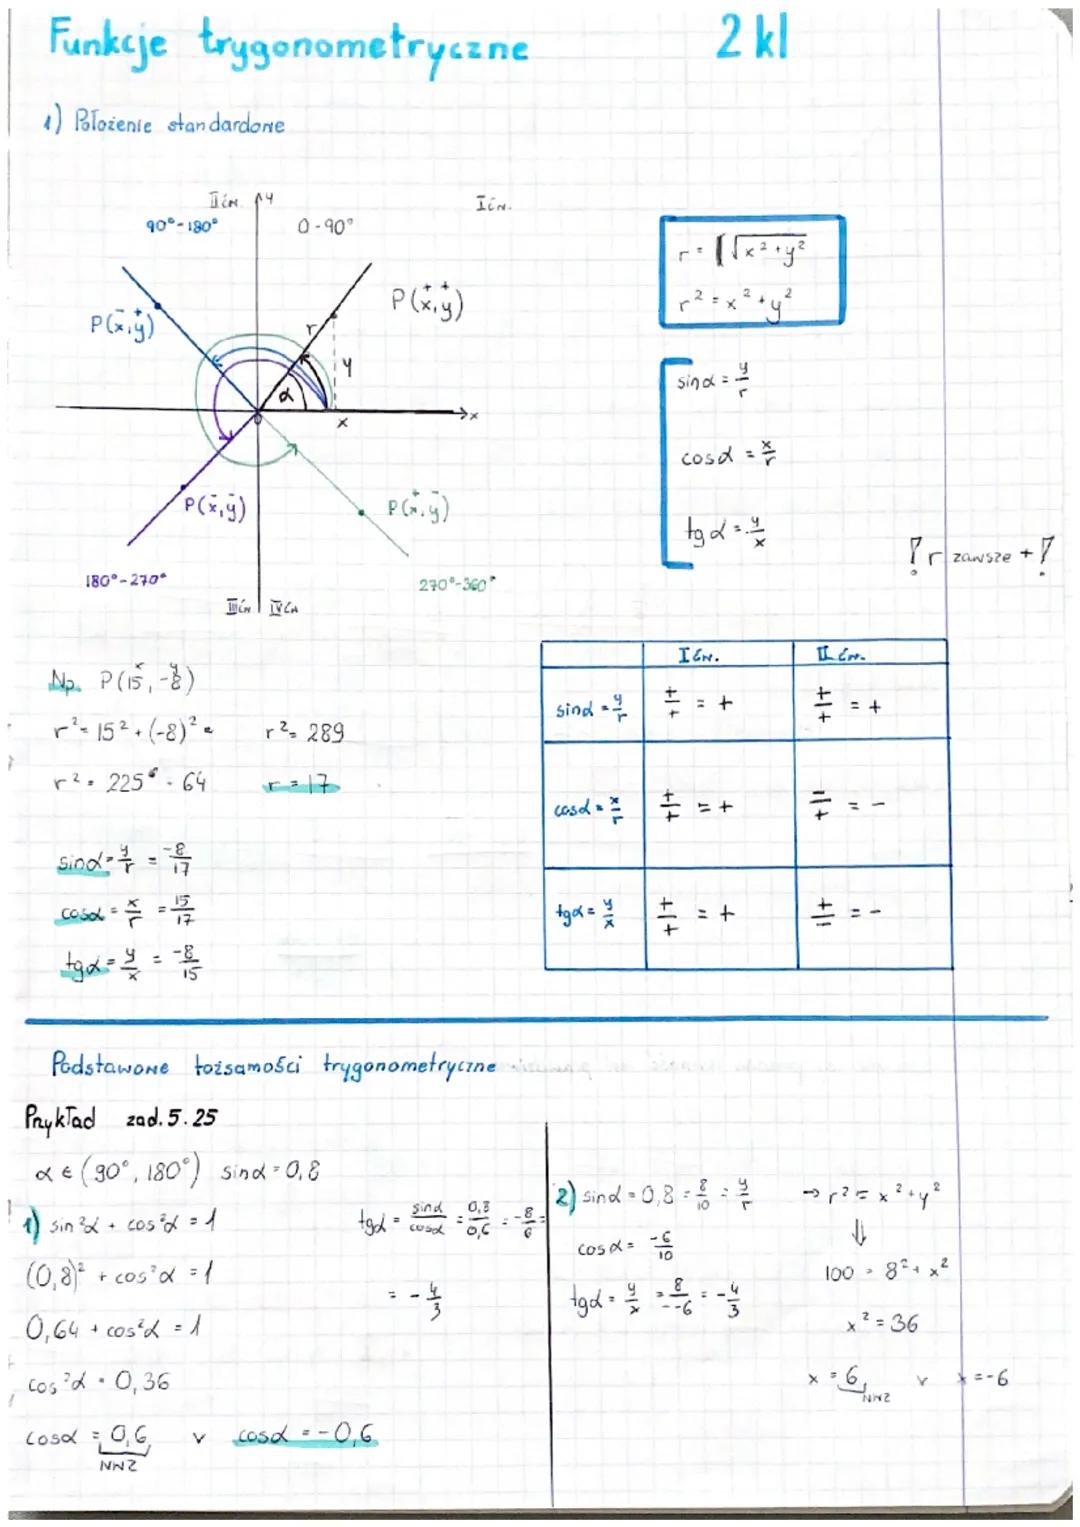 Funkcje trygonometryczne 2 kl
1) Położenie standardowe
II ćw. y I ćw.
90°-180° 0-90°
P(x̄,y⁺) P(x⁺,y⁺)
r
y
α
0 x x
P(x̄,ȳ) P(x⁺,ȳ)
180°-270° 270°-360°
III ćw IV ćw
r = √x²+y²
r² = x²+y²
sinα = y/r
cosα = x/r
tgα = y/x
! r zawsze + !
Np. P(15, -8)
x y
r² = 15² + (-8)² = r² = 289
r² = 225 - 64 r = 17
sinα = y/r = -8/17
cosα = x/r = 15/17
tgα = y/x = -8/15
I ćw. II ćw.
sinα = y/r +/+ = + +/+ = +
cosα = x/r +/+ = + -/+ = -
tgα = y/x +/+ = + +/- = -
Podstawowe tożsamości trygonometryczne
Przykład zad. 5.25
α ∈ (90°, 180°) sinα = 0,8
1) sin²α + cos²α = 1
(0,8)² + cos²α = 1
0,64 + cos²α = 1
cos²α = 0,36
cosα = 0,6 v cosα = -0,6
NWZ
tgα = sinα/cosα = 0,8/0,6 = -8/6 =
= -4/3
2) sinα = 0,8 = 8/10 = y/r
cosα = -6/10
tgα = y/x = 8/--6 = -4/3
→ r² = x² + y²
⇓
100 = 8² + x²
x² = 36
x = 6 v x = -6
NWZ